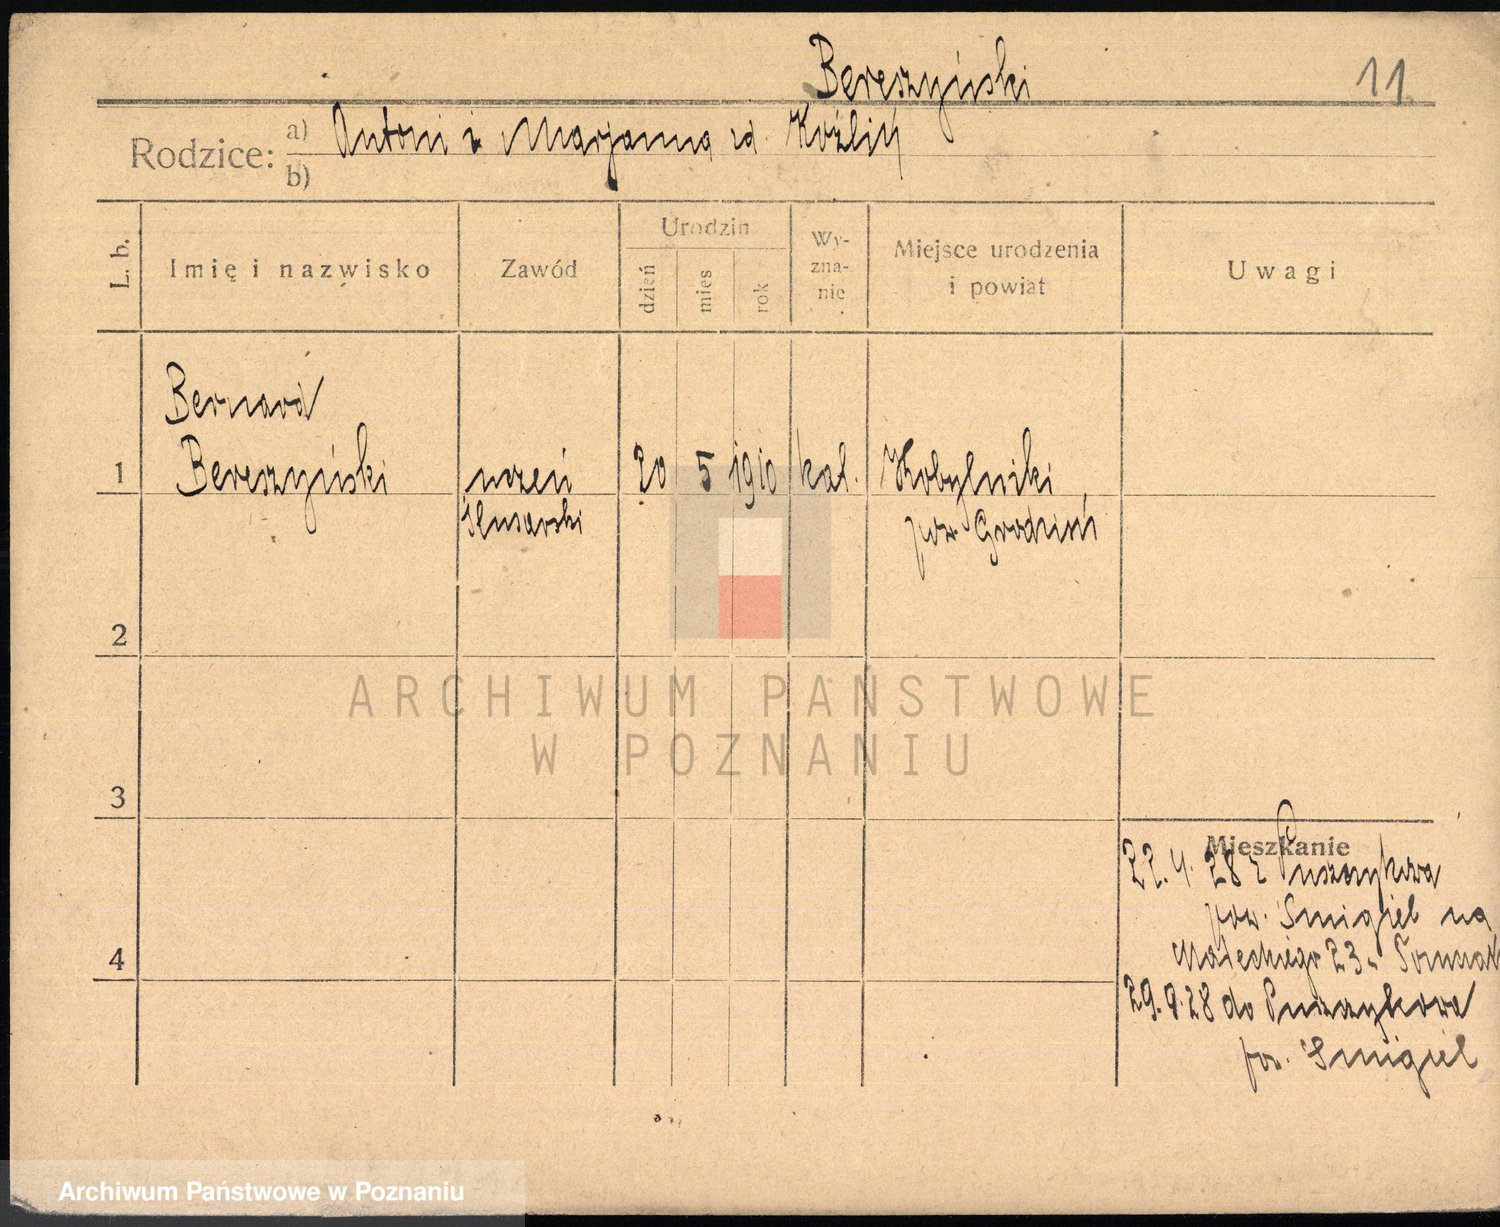 Bereszyński
11
Rodzice:
a) Antoni i Marjanna zd. Koźlik
b)
L. b.
Imię i nazwisko
Zawód
Urodzin
dzień
mies
rok
Wy-
zna-
nie
Miejsce urodzenia
i powiat
Uwagi
Bernard
1 Bereszyński uczeń 20 5 1910 kat. Kobylniki
ślusarski pow. Grodzisk
2
ARCHIWUM PAŃSTWOWE
W POZNANIU
3
Mieszkanie
22. 4. 28 z Puszczykowa
pow. Śmigiel na
Małeckiego 23
4
29. 9. 28 do Puszczykowa
pow. Śmigiel
Archiwum Państwowe w Poznaniu